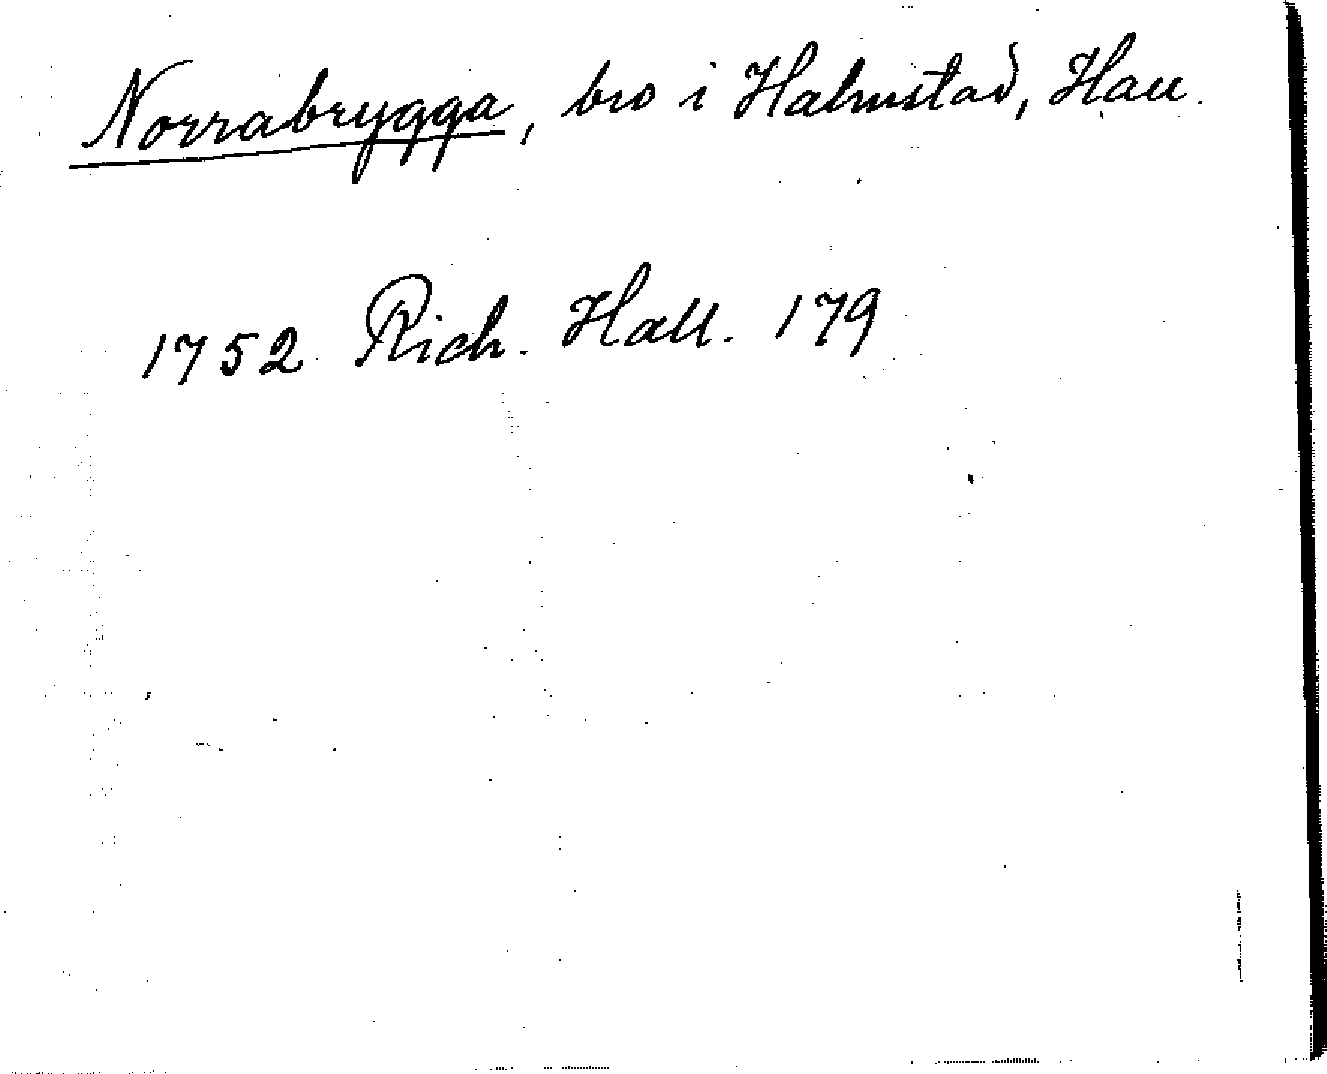 Norrabrygga, bro i Halmstad, Hall.
1752 Rich. Hall. 179